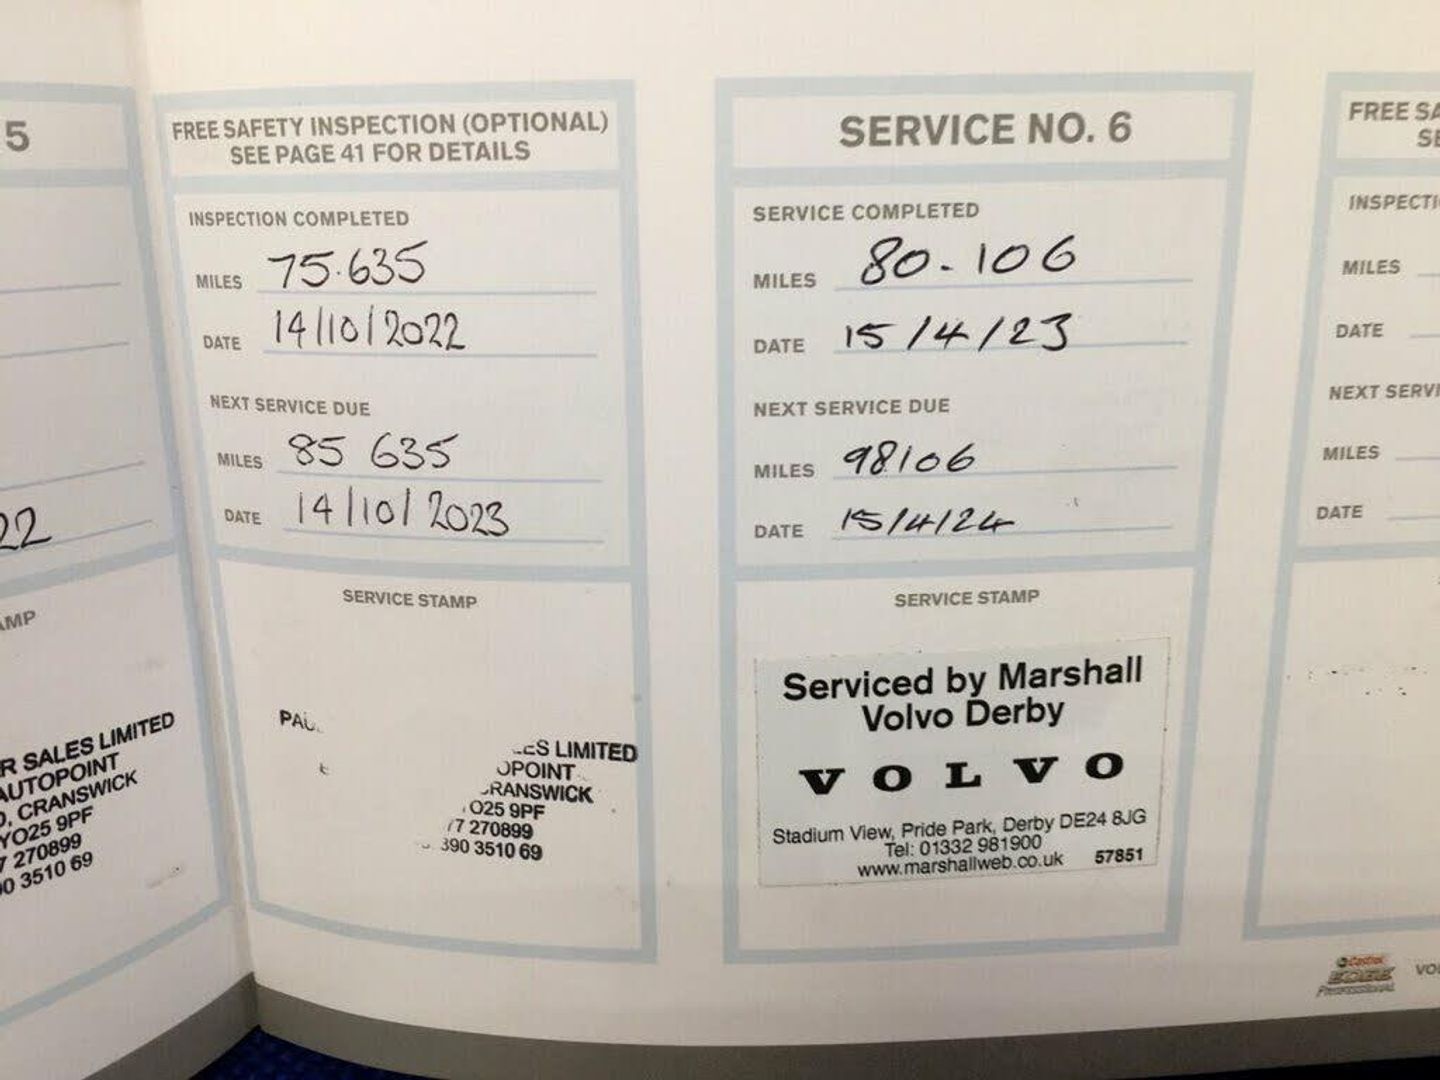 5
22
AMP
R SALES LIMITED
AUTOPOINT
, CRANSWICK
YO25 9PF
7 270899
90 3510 69
FREE SAFETY INSPECTION (OPTIONAL)
SEE PAGE 41 FOR DETAILS
INSPECTION COMPLETED
MILES 75.635
DATE 14/10/2022
NEXT SERVICE DUE
MILES 85 635
DATE 14/10/2023
SERVICE STAMP
PAU
ES LIMITED
OPOINT
CRANSWICK
O25 9PF
77 270899
390 3510 69
SERVICE NO. 6
SERVICE COMPLETED
MILES 80.106
DATE 15/4/23
NEXT SERVICE DUE
MILES 98106
DATE 15/4/24
SERVICE STAMP
Serviced by Marshall
Volvo Derby
VOLVO
Stadium View, Pride Park, Derby DE24 8JG
Tel: 01332 981900
www.marshallweb.co.uk 57851
FREE SA
SE
INSPECTI
MILES
DATE
NEXT SERVI
MILES
DATE
Castrol
EDGE
Professional
VOL